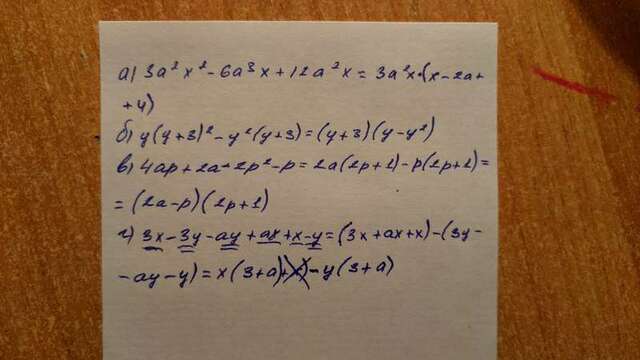 а) 3a²x² - 6a³x + 12a²x = 3a²x·(x - 2a +
+ 4)
б) y(y+3)² - y²(y+3) = (y+3)(y - y²)
в) 4ap + 2a - 2p² - p = 2a(2p+1) - p(2p+1) =
= (2a - p)(2p + 1)
г) 3x - 3y - ay + ax + x - y = (3x + ax + x) - (3y -
- ay - y) = x(3 + a) - y(3 + a)